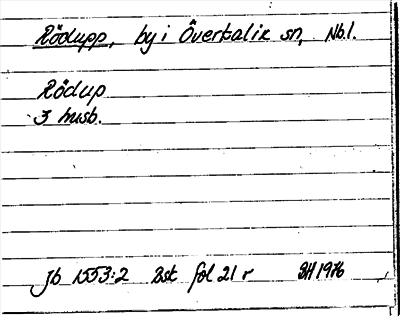 Rödupp, by i Överkalix sn, Nb.l.
Rödup
3 husb.
Jb 1553:2 Bst fol 21 r SH 1976